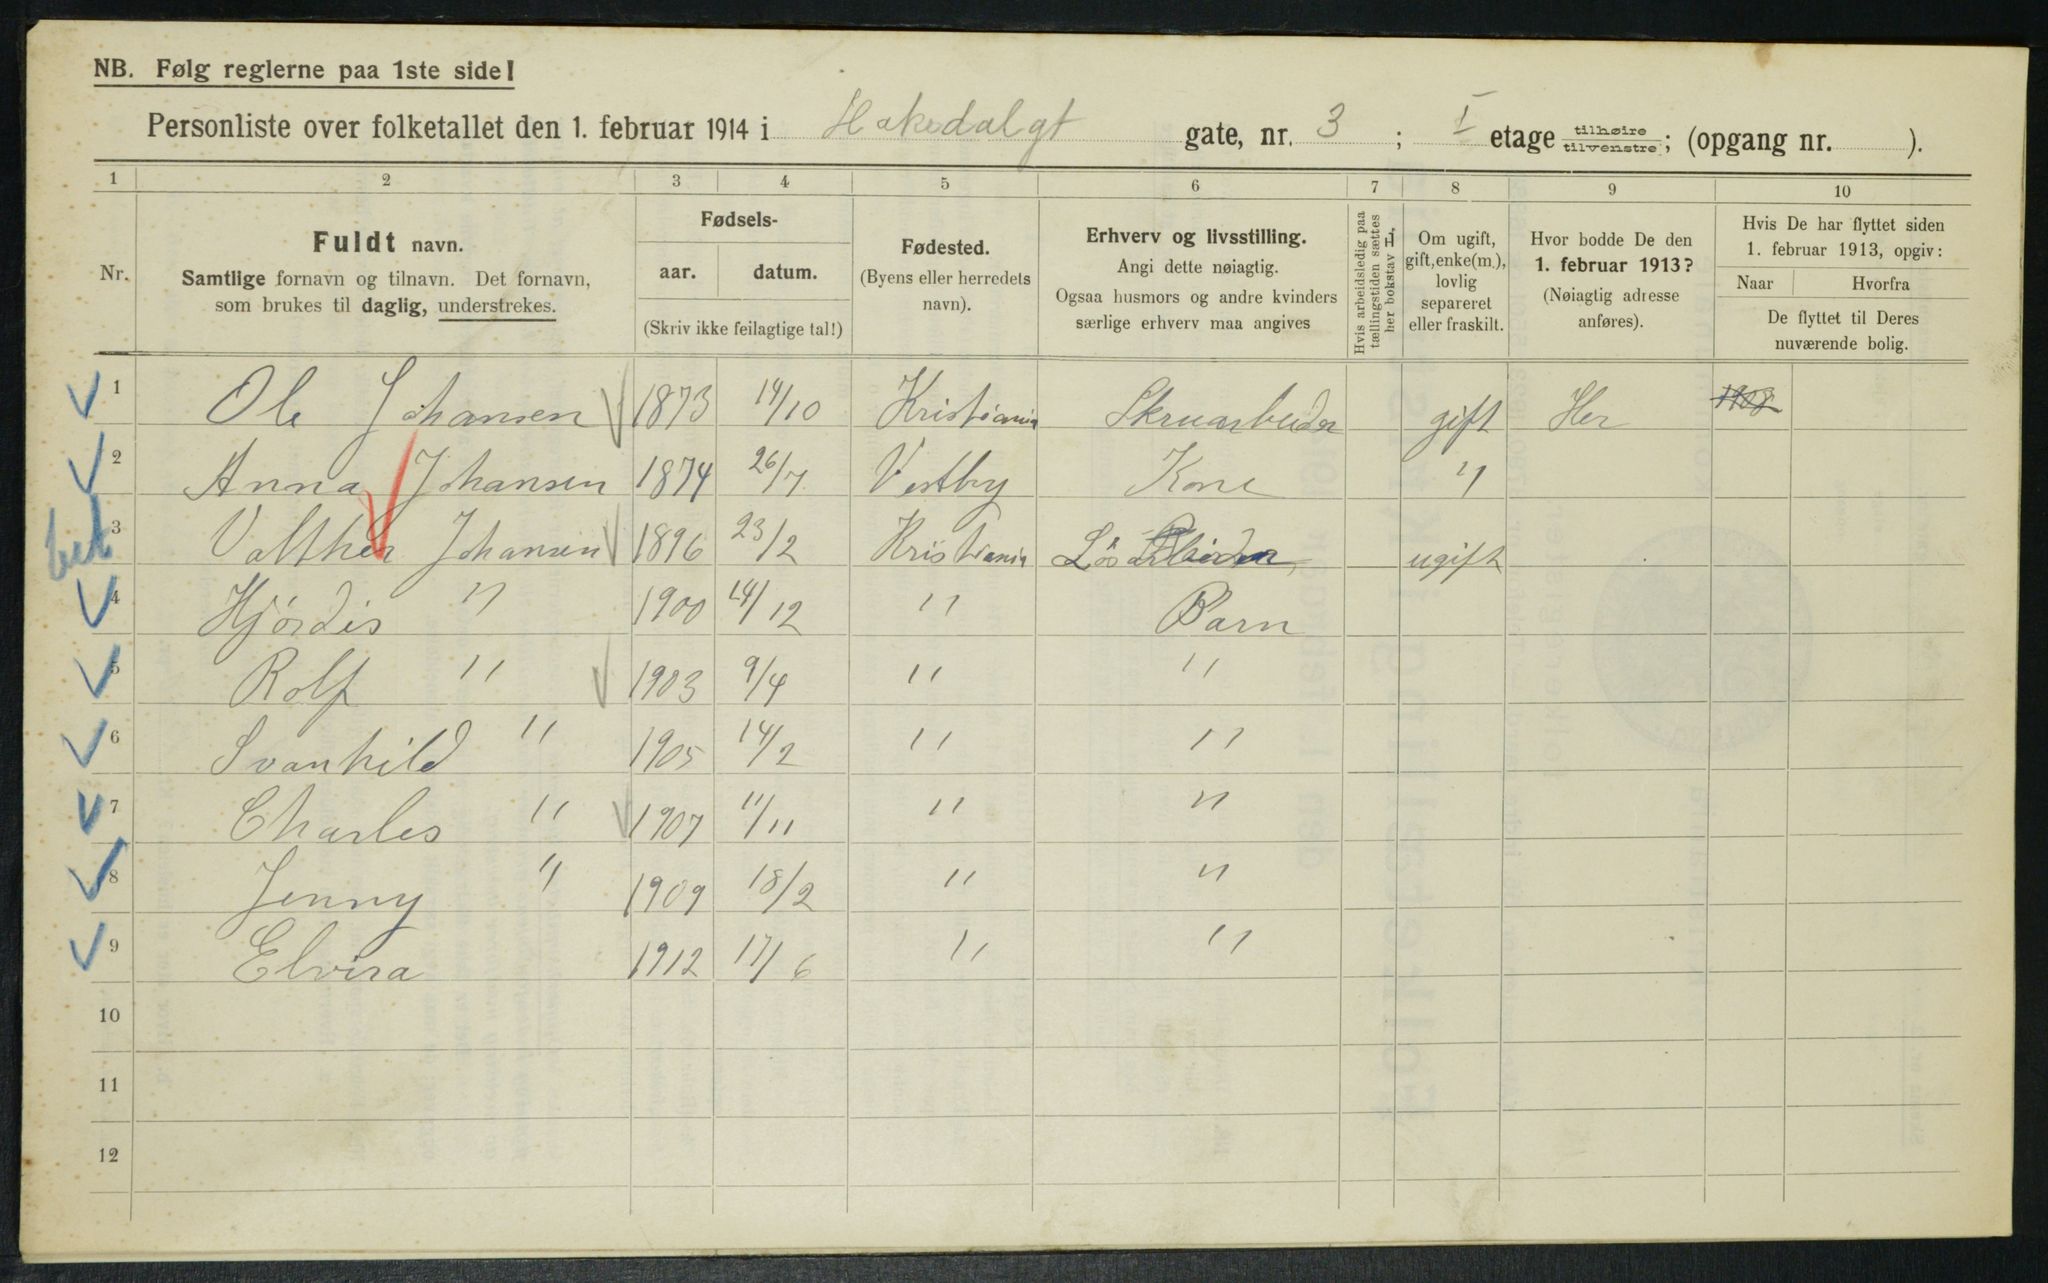 NB. Følg reglerne paa 1ste side!
Personliste over folketallet den 1. februar 1914 i Hakedalgt gate, nr. 3 ; I etage tilhøire tilvenstre; (opgang nr. ).
1 2 3 4 5 6 7 8 9 10
Nr.
Fuldt navn.
Samtlige fornavn og tilnavn. Det fornavn,
som brukes til daglig, understrekes.
Fødsels-
aar. datum.
(Skriv ikke feilagtige tal!)
Fødested.
(Byens eller herredets
navn).
Erhverv og livsstilling.
Angi dette nøiagtig.
Ogsaa husmors og andre kvinders
særlige erhverv maa angives
Hvis arbeidsledig paa
tællingstiden sættes
her bokstav L.
Om ugift,
gift, enke(m.),
lovlig
separeret
eller fraskilt.
Hvor bodde De den
1. februar 1913?
(Nøiagtig adresse
anføres).
Hvis De har flyttet siden
1. februar 1913, opgiv:
Naar Hvorfra
De flyttet til Deres
nuværende bolig.
1 Ole Johansen 1873 14/10 Kristiania Skruarbeider gift Her 1908
2 Anna Johansen 1874 26/7 Vestby Kone "
3 Valther Johansen 1896 23/2 Kristiania Lös ugift
4 Hjördis " 1900 14/12 " Barn
5 Rolf " 1903 9/4 " "
6 Svanhild " 1905 14/2 " "
7 Charles " 1907 11/11 " "
8 Jenny " 1909 18/2 " "
9 Elvira 1912 17/6 " "
10
11
12